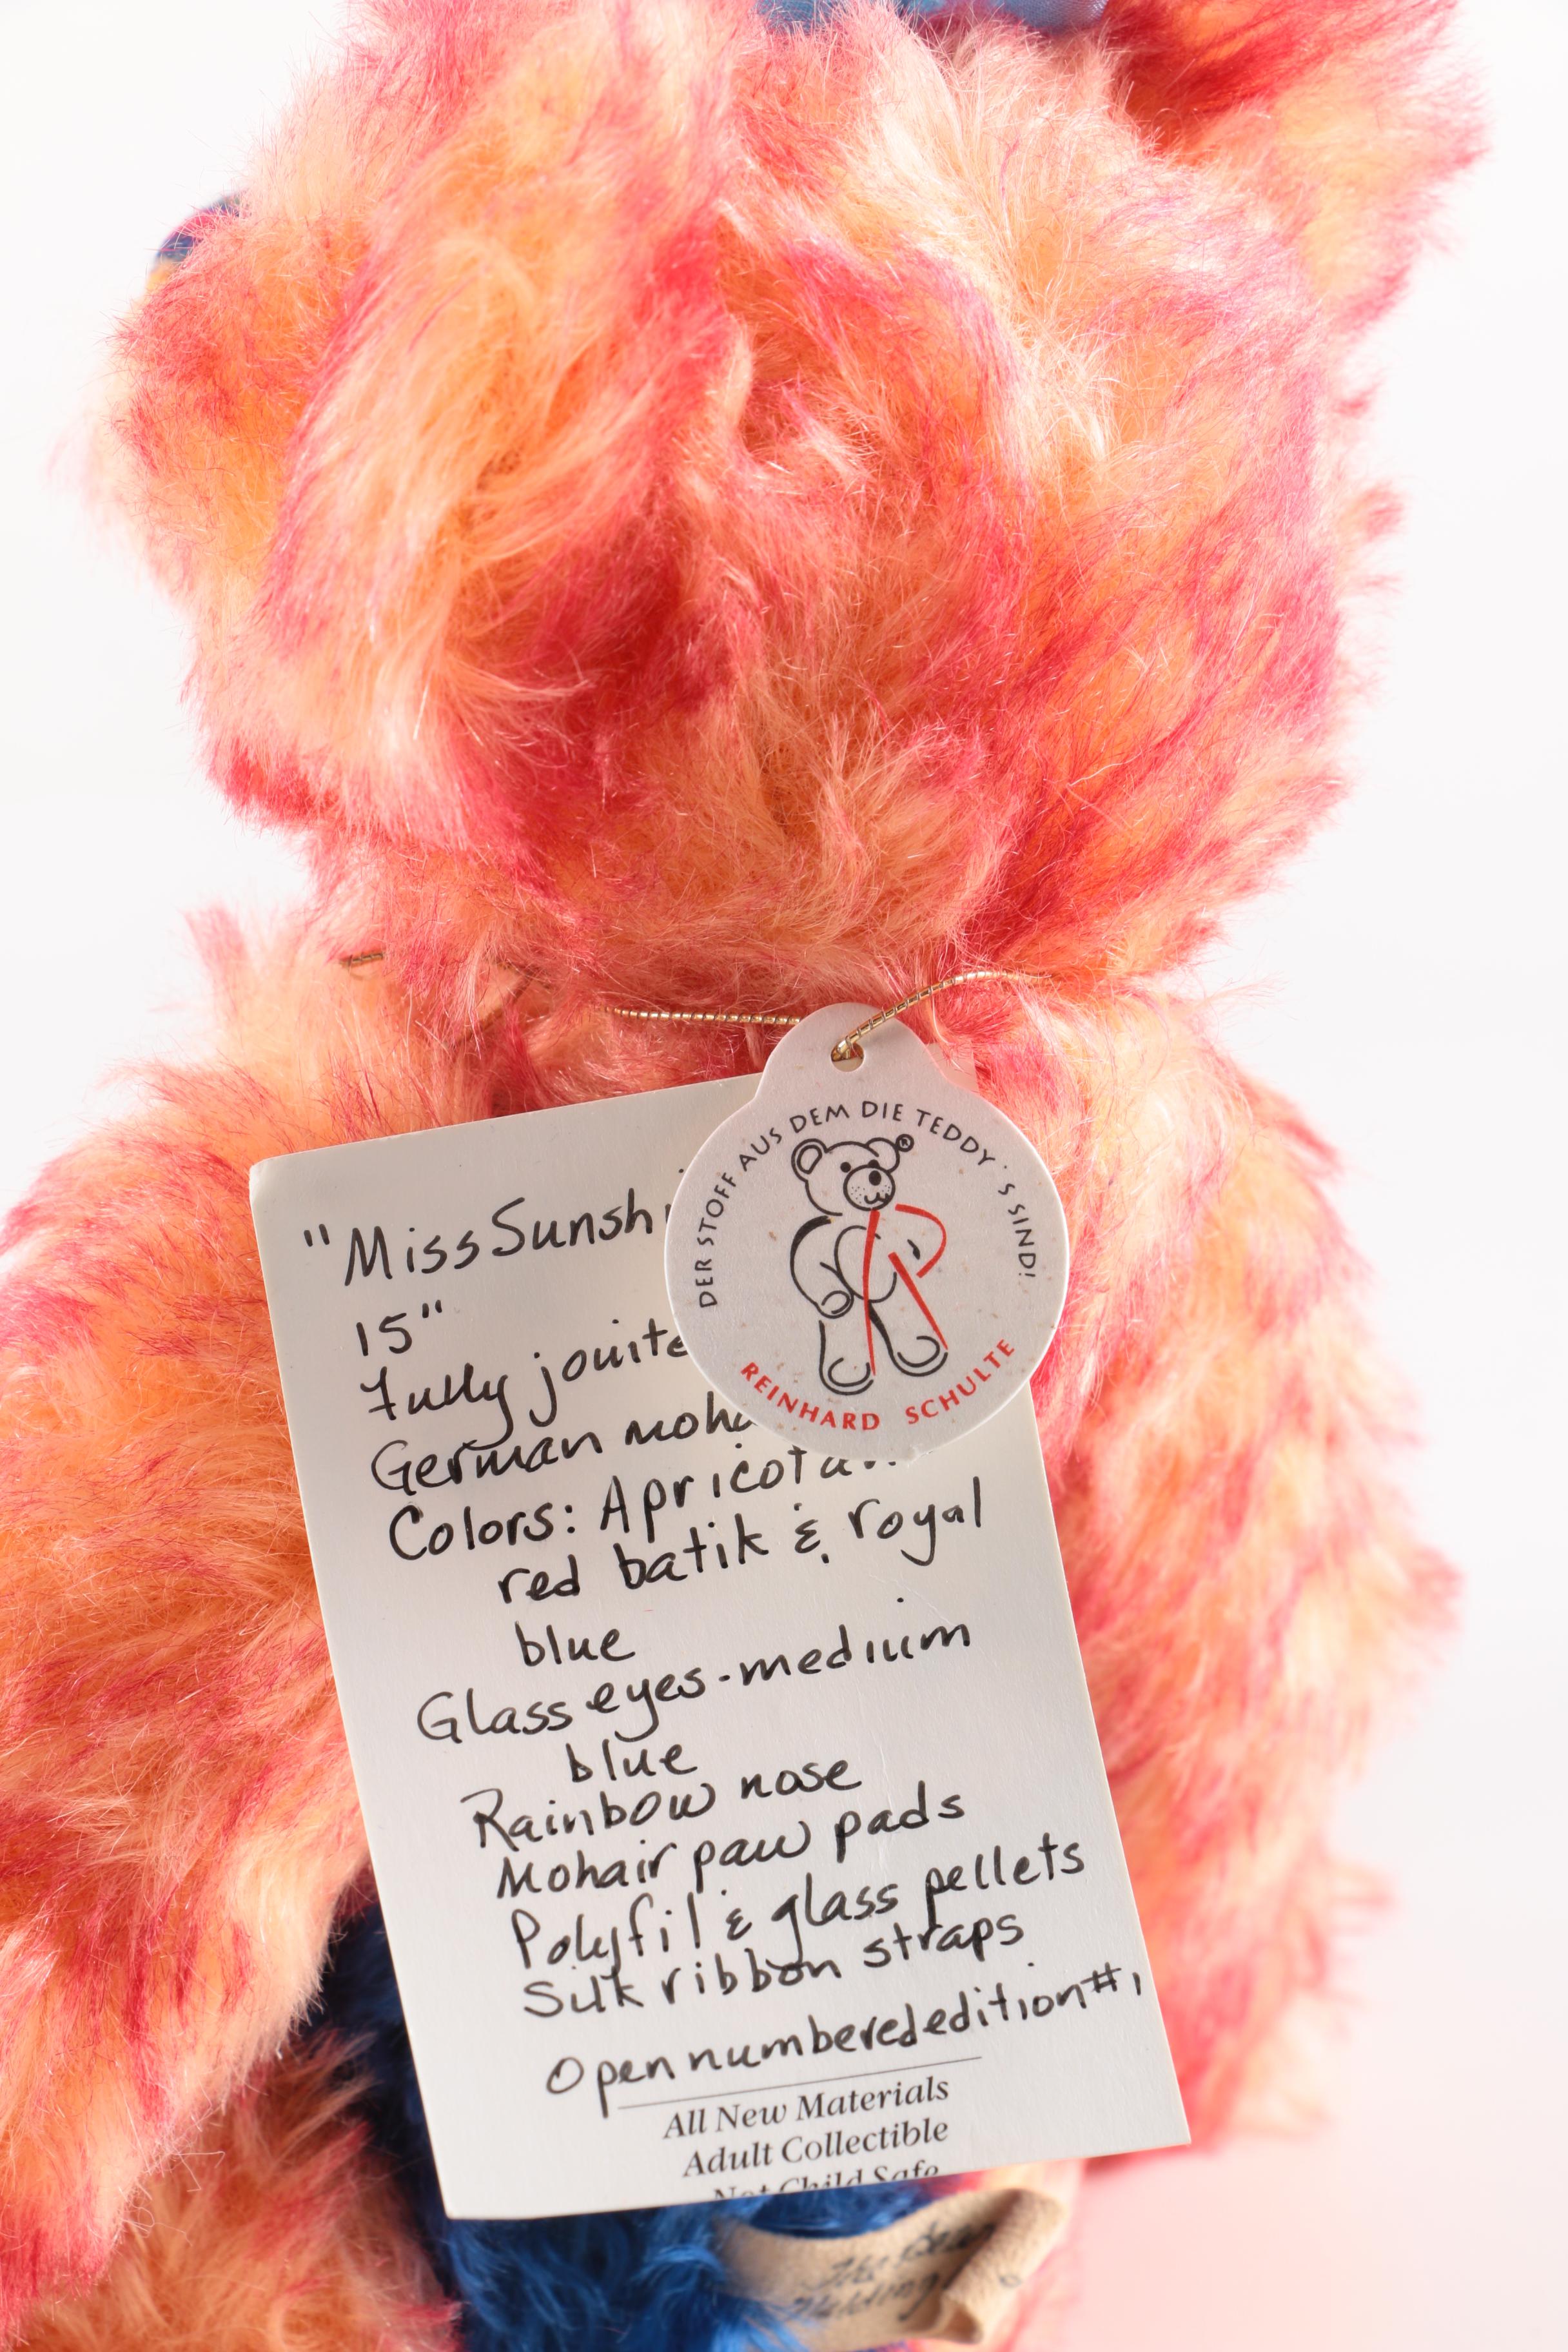 DER STOFF AUS DEM DIE TEDDY'S SIND!
®
REINHARD SCHULTE
"Miss Sunshi
15"
Fully jouite
German moha
Colors: Apricot
red batik & royal
blue
Glass eyes-medium
blue
Rainbow nose
Mohair paw pads
Polyfil & glass pellets
Silk ribbon straps
Open numbered edition #1
All New Materials
Adult Collectible
Not Child Safe